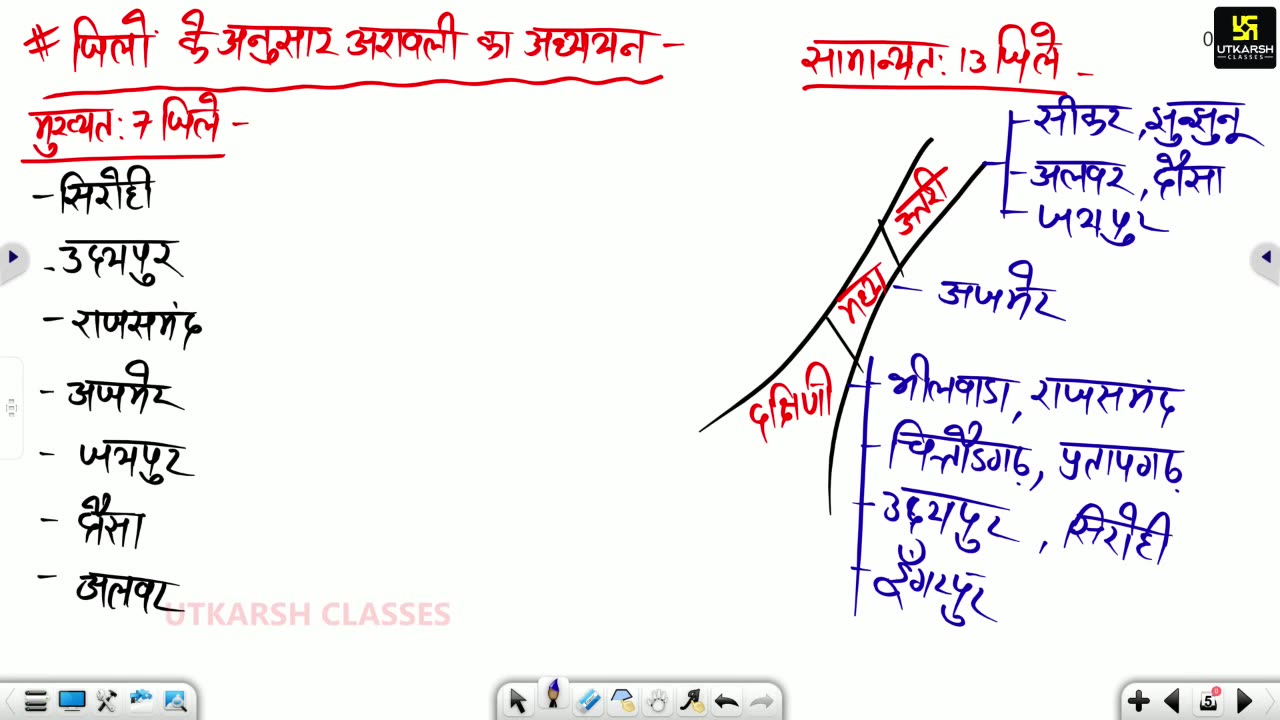 # जिलों के अनुसार अरावली का अध्ययन -
मुख्यत: 7 जिले -
- सिरोही
- उदयपुर
- राजसमंद
- अजमेर
- जयपुर
- दौसा
- अलवर
सामान्यत: 13 जिले -
उत्तरी
- सीकर, झुन्झुनू
- अलवर, दौसा
- जयपुर
मध्य
- अजमेर
दक्षिणी
- भीलवाडा, राजसमंद
- चित्तौडगढ़, प्रतापगढ़
- उदयपुर, सिरोही
- डूँगरपुर
UTKARSH CLASSES
UTKARSH
CLASSES
5